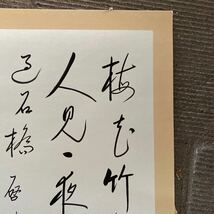 梅花竹
人見一夜
过石橋